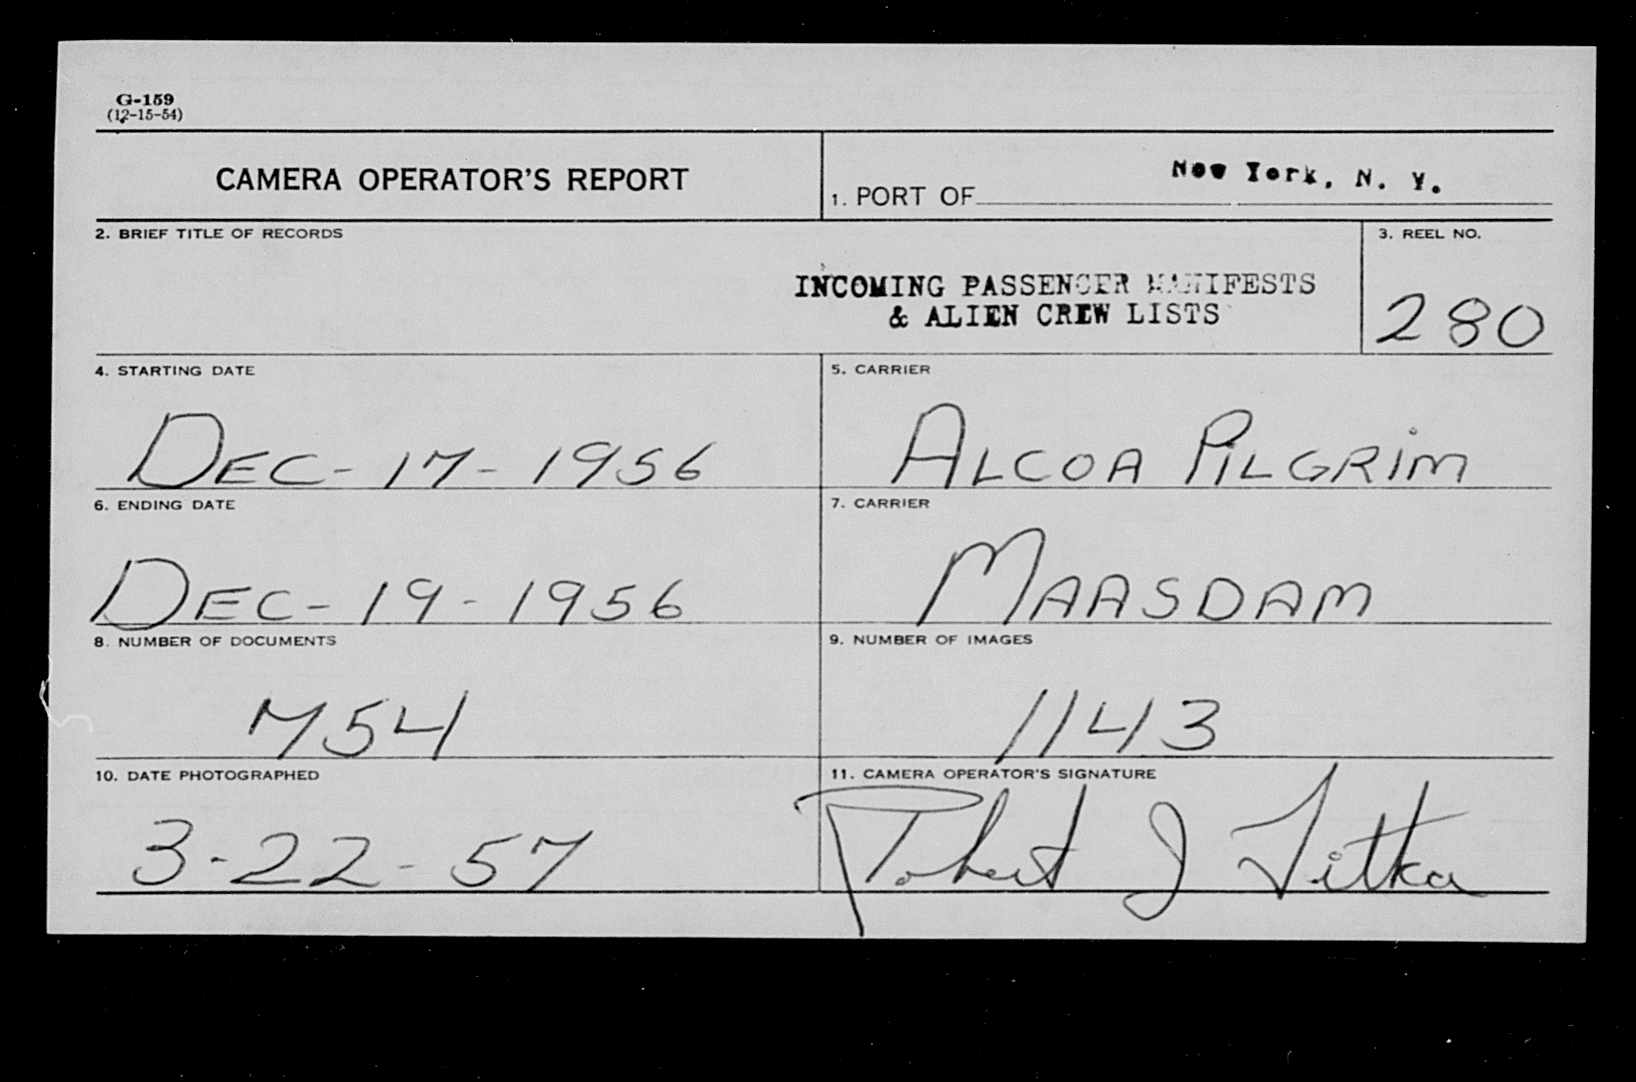 G-159
(12-15-54)
CAMERA OPERATOR'S REPORT
1. PORT OF New York, N. Y.
2. BRIEF TITLE OF RECORDS
INCOMING PASSENGER MANIFESTS
& ALIEN CREW LISTS
3. REEL NO.
280
4. STARTING DATE
DEC-17-1956
5. CARRIER
ALCOA PILGRIM
6. ENDING DATE
DEC-19-1956
7. CARRIER
MAASDAM
8. NUMBER OF DOCUMENTS
754
9. NUMBER OF IMAGES
1143
10. DATE PHOTOGRAPHED
3-22-57
11. CAMERA OPERATOR'S SIGNATURE
Robert J